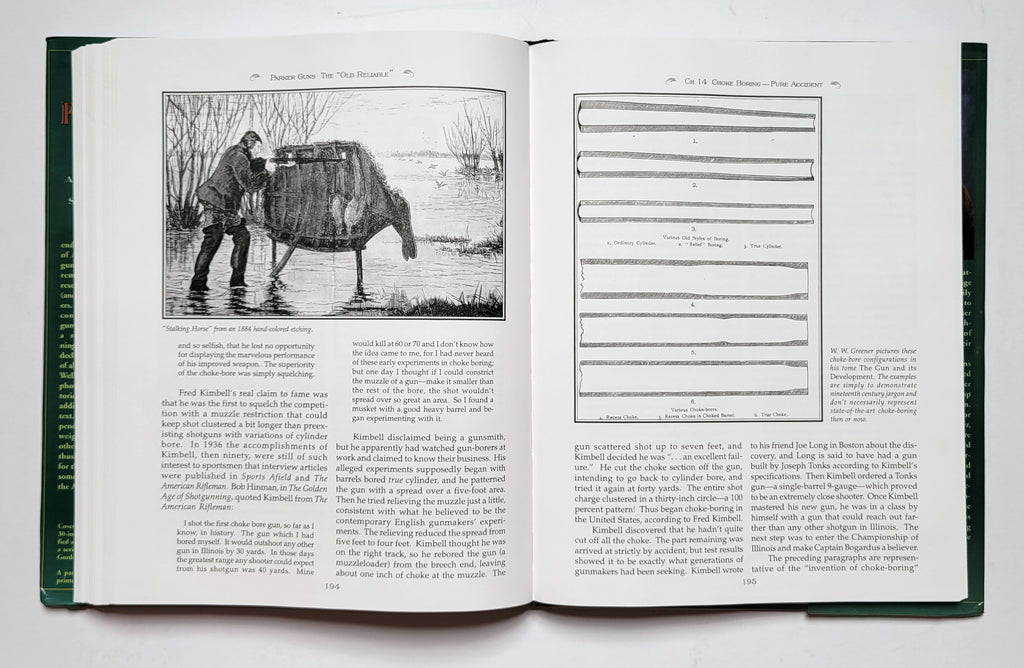 PARKER GUNS THE "OLD RELIABLE"
"Stalking Horse" from an 1884 hand-colored etching.
and so selfish, that he lost no opportunity
for displaying the marvelous performance
of his improved weapon. The superiority
of the choke-bore was simply squelching.
Fred Kimbell's real claim to fame was
that he was the first to squelch the competi-
tion with a muzzle restriction that could
keep shot clustered a bit longer than preex-
isting shotguns with variations of cylinder
bore. In 1936 the accomplishments of
Kimbell, then ninety, were still of such
interest to sportsmen that interview articles
were published in Sports Afield and The
American Rifleman. Bob Hinman, in The Golden
Age of Shotgunning, quoted Kimbell from The
American Rifleman:
I shot the first choke bore gun, so far as I
know, in history. The gun which I had
bored myself. It would outshoot any other
gun in Illinois by 30 yards. In those days
the greatest range any shooter could expect
from his shotgun was 40 yards. Mine
would kill at 60 or 70 and I don't know how
the idea came to me, for I had never heard
of these early experiments in choke boring;
but one day I thought if I could constrict
the muzzle of a gun—make it smaller than
the rest of the bore, the shot wouldn't
spread over so great an area. So I found a
musket with a good heavy barrel and be-
gan experimenting with it.
Kimbell disclaimed being a gunsmith,
but he apparently had watched gun-borers at
work and claimed to know their business. His
alleged experiments supposedly began with
barrels bored true cylinder, and he patterned
the gun with a spread over a five-foot area.
Then he tried relieving the muzzle just a little,
consistent with what he believed to be the
contemporary English gunmakers' experi-
ments. The relieving reduced the spread from
five feet to four feet. Kimbell thought he was
on the right track, so he rebored the gun (a
muzzleloader) from the breech end, leaving
about one inch of choke at the muzzle. The
194
CH 14 CHOKE BORING—PURE ACCIDENT
1.
2.
3.
Various Old Styles of Boring.
1. Ordinary Cylinder. 2. "Relief" Boring. 3. True Cylinder.
4.
5.
6.
Various Choke-bores.
4. Recess Choke. 5. Recess Choke in Choked Barrel. 6. True Choke.
W. W. Greener pictures these
choke-bore configurations in
his tome The Gun and its
Development. The examples
are simply to demonstrate
nineteenth century jargon and
don't necessarily represent
state-of-the-art choke-boring
then or now.
gun scattered shot up to seven feet, and
Kimbell decided he was ". . . an excellent fail-
ure." He cut the choke section off the gun,
intending to go back to cylinder bore, and
tried it again at forty yards. The entire shot
charge clustered in a thirty-inch circle—a 100
percent pattern! Thus began choke-boring in
the United States, according to Fred Kimbell.
Kimbell discovered that he hadn't quite
cut off all the choke. The part remaining was
arrived at strictly by accident, but test results
showed it to be exactly what generations of
gunmakers had been seeking. Kimbell wrote
to his friend Joe Long in Boston about the dis-
covery, and Long is said to have had a gun
built by Joseph Tonks according to Kimbell's
specifications. Then Kimbell ordered a Tonks
gun—a single-barrel 9-gauge—which proved
to be an extremely close shooter. Once Kimbell
mastered his new gun, he was in a class by
himself with a gun that could reach out far-
ther than any other shotgun in Illinois. The
next step was to enter the Championship of
Illinois and make Captain Bogardus a believer.
The preceding paragraphs are represen-
tative of the "invention of choke-boring"
195